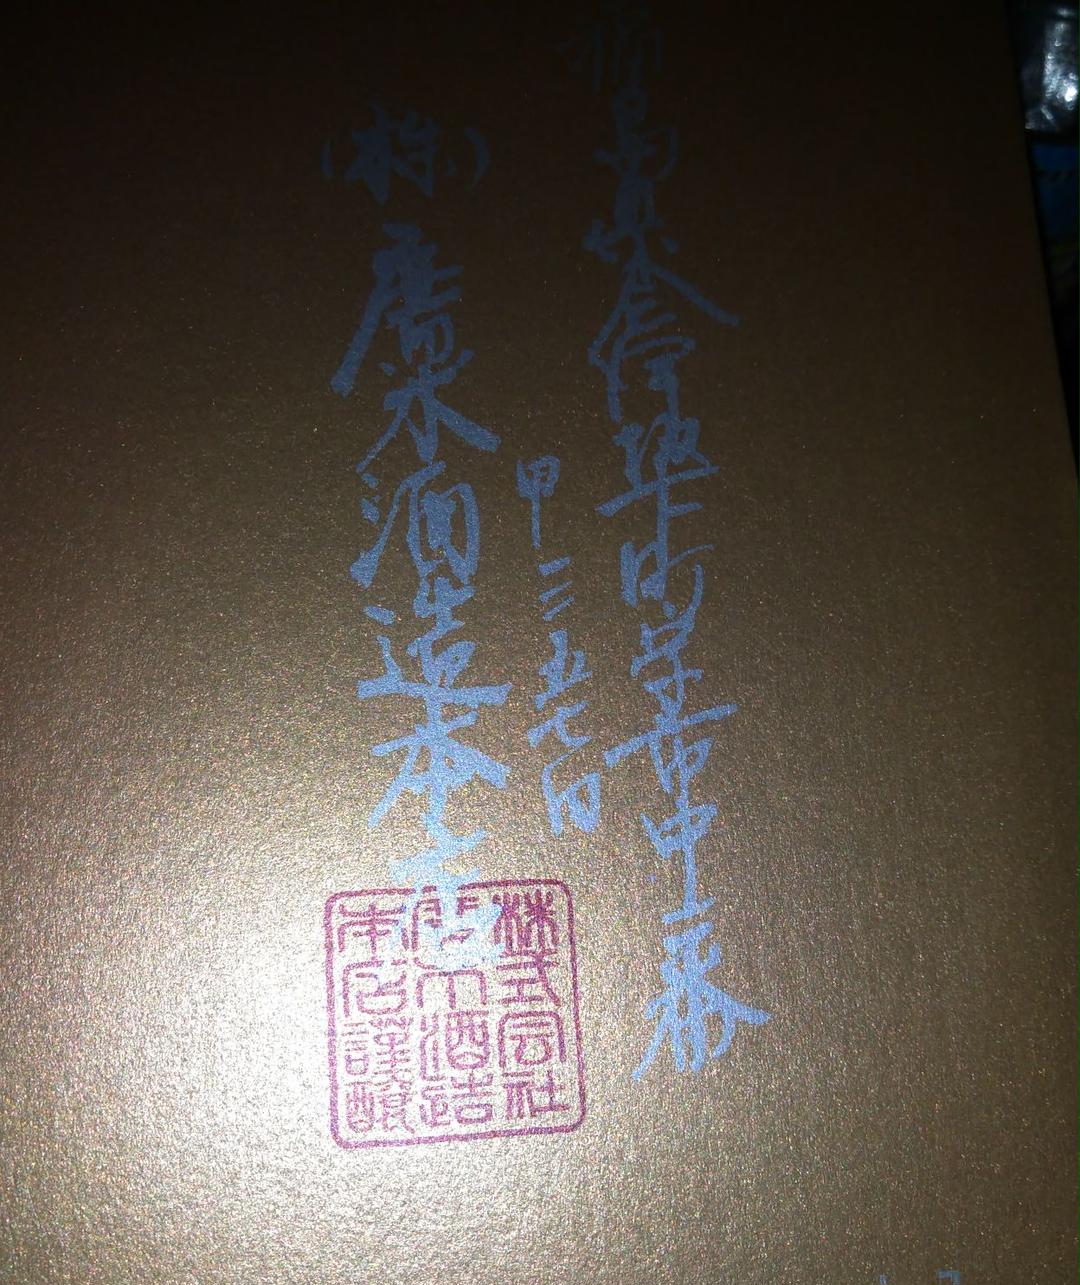 福島県会津坂下町字市中二番
甲三五七四
(株)廣木酒造本店
株式会社
廣木酒造
本店謹醸